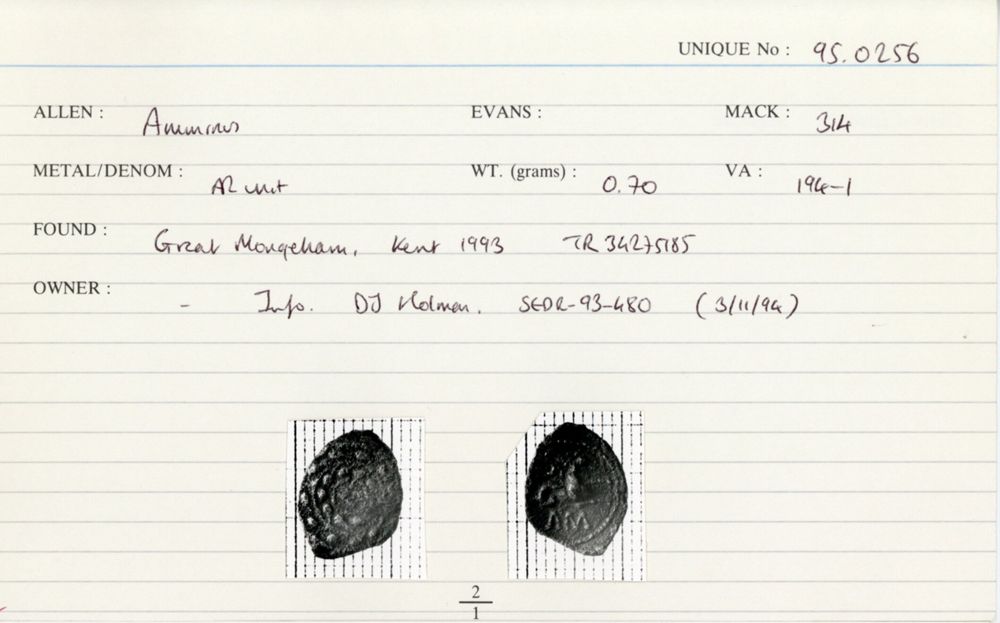 UNIQUE No : 95.0256
ALLEN : Amminus EVANS : MACK : 314
METAL/DENOM : AR unit WT. (grams) : 0.70 VA : 194-1
FOUND : Great Mongeham, Kent 1993 TR 34275185
OWNER : - Info. DJ Holman. SEDR-93-480 (3/11/94)
2
1